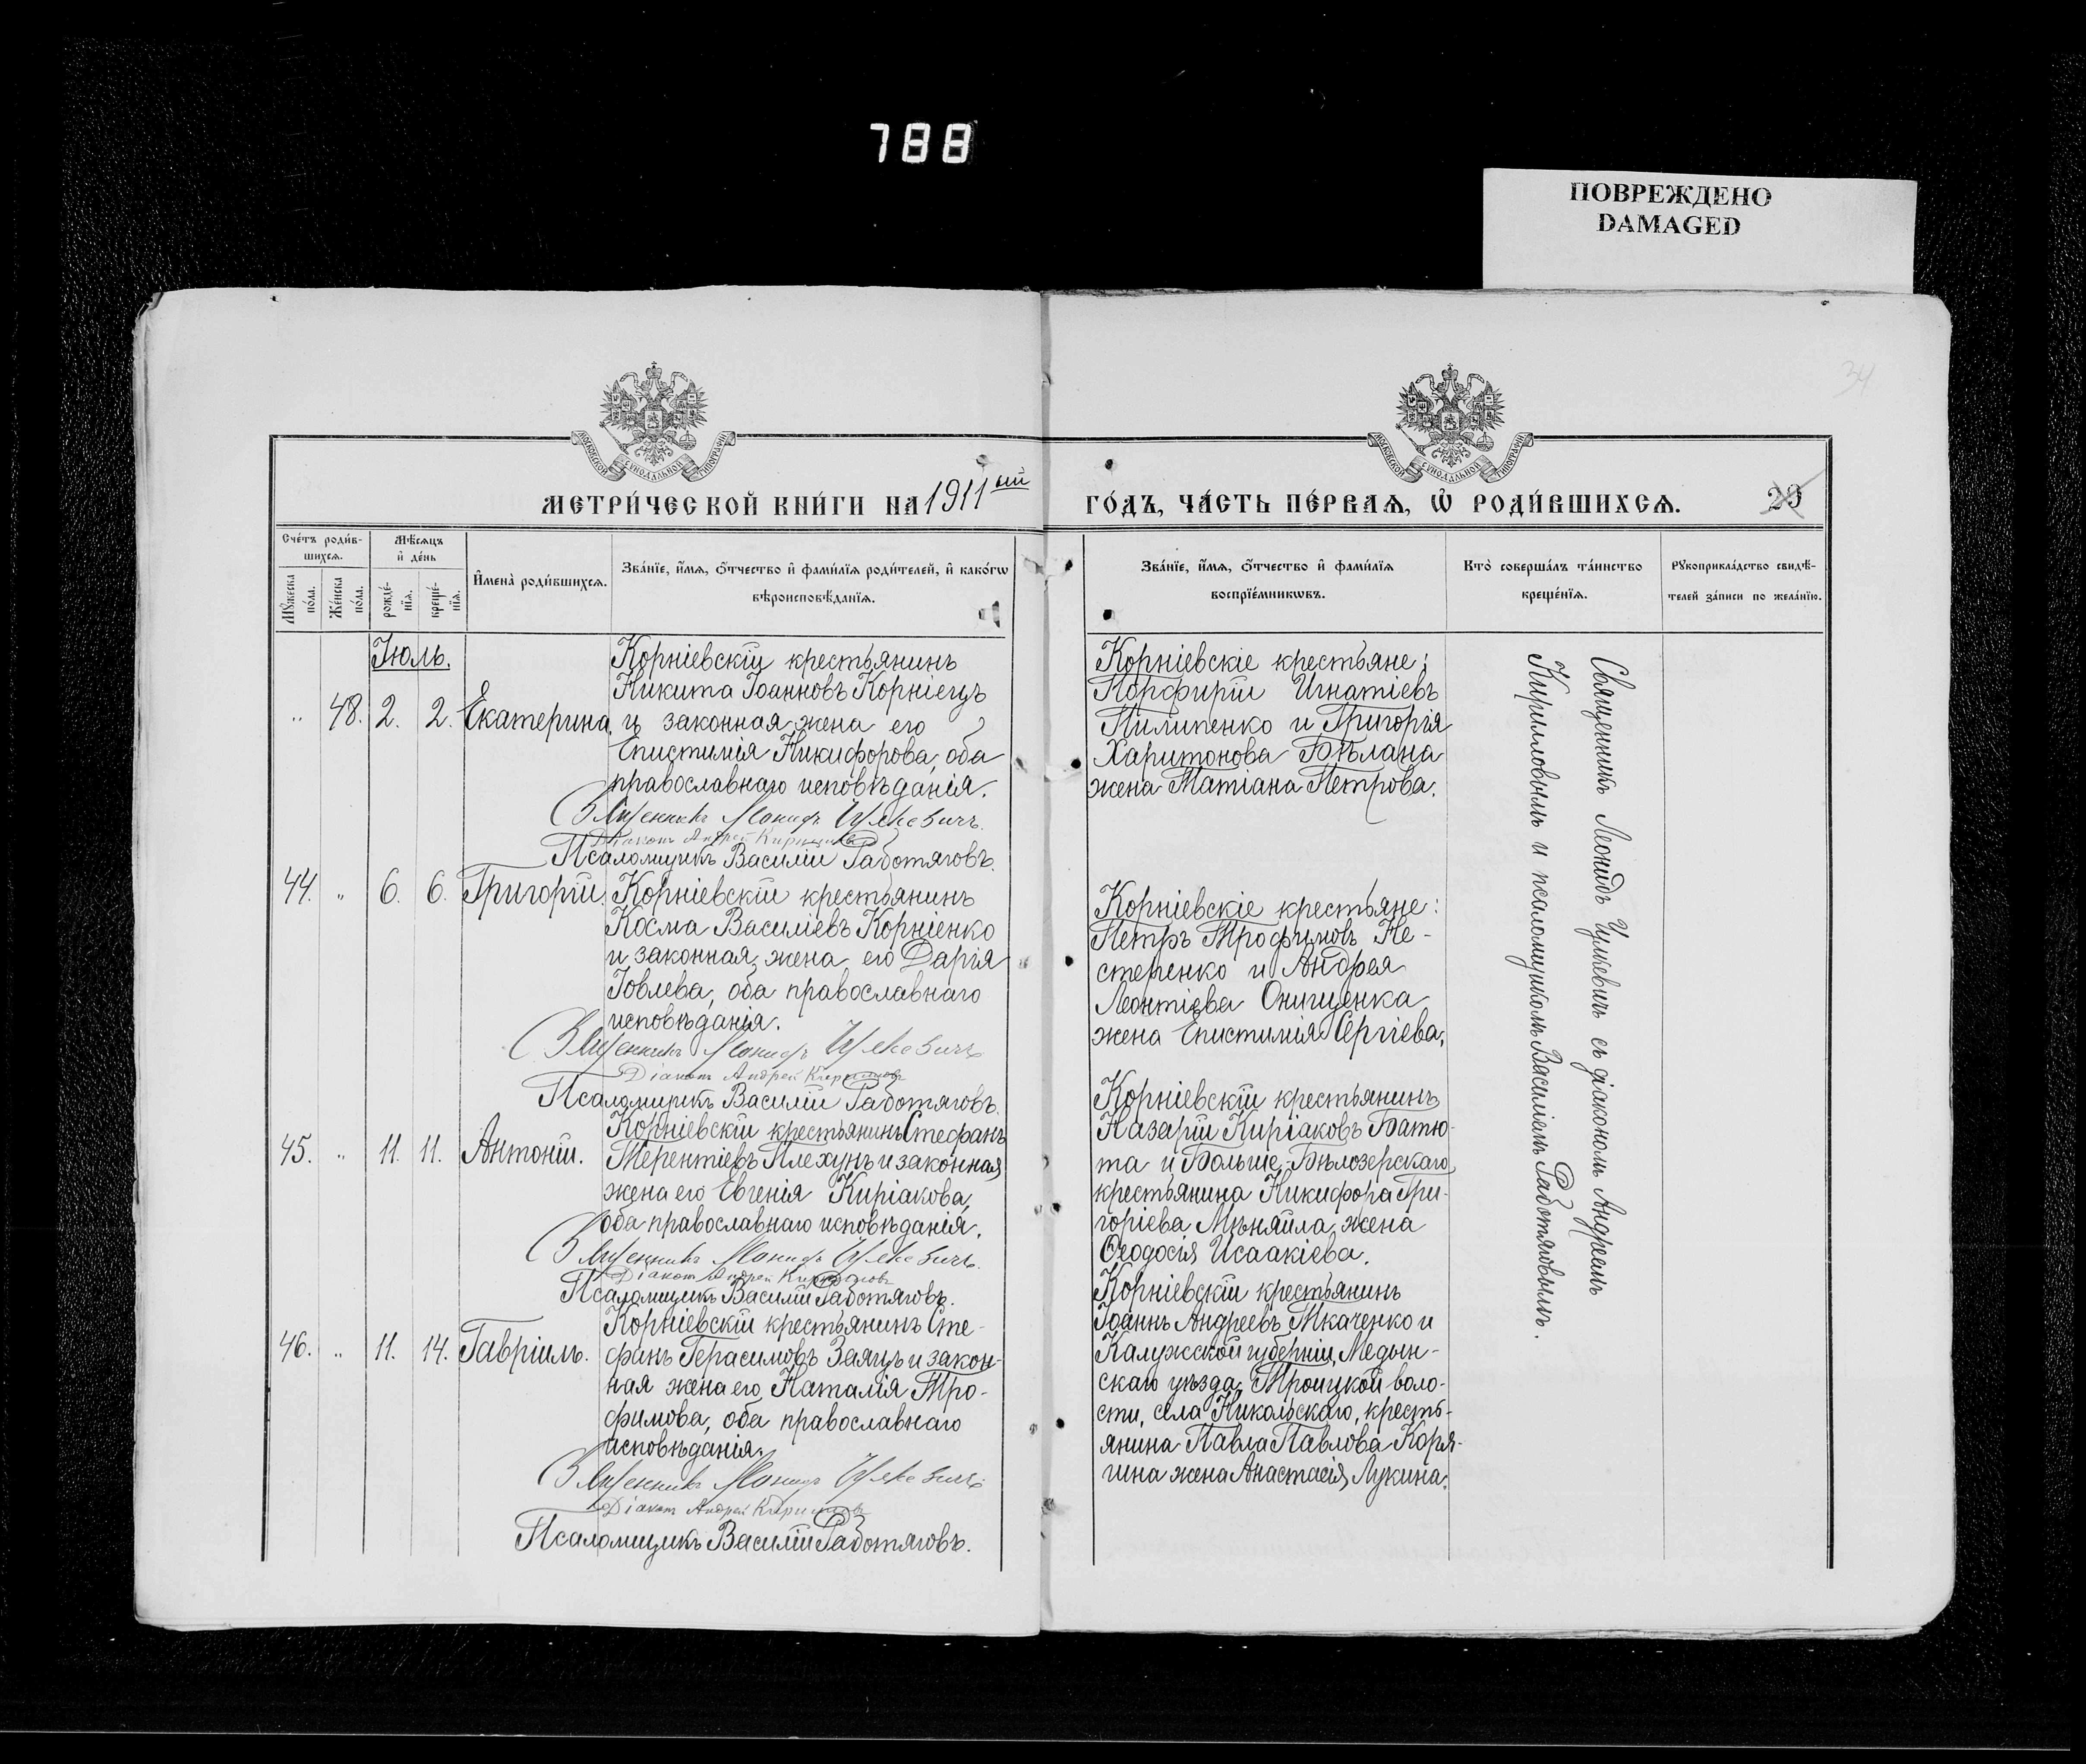 788
ПОВРЕЖДЕНО
DAMAGED
34
МОСКОВСКОЙ СѴНОДАЛЬНОЙ ТИПОГРАФІИ
МОСКОВСКОЙ СѴНОДАЛЬНОЙ ТИПОГРАФІИ
МЕТРИ́ЧЕСКОЙ КНИ́ГИ НА 1911ый ГО́ДЪ, ЧА́СТЬ ПЕ́РВАЯ, Ѡ҆ РОДИ́ВШИХСЯ.
29
Сче́тъ роди́вшихся.
Мѣ́сяцъ и҆ де́нь
Мꙋ́жеска по́ла.
Же́нска по́ла.
рожде́нїя.
креще́нїя.
И҆мена̀ роди́вшихся.
Зва́нїе, и҆́мя, ѻ҆́тчество и҆ фами́лїя роди́телей, и҆ како́гѡ
вѣроисповѣ́данїя.
Зва́нїе, и҆́мя, ѻ҆́тчество и҆ фами́лїя
воспрїе́мникѡвъ.
Кто̀ соверша́лъ та́инство
креще́нїя.
Рꙋкоприкла́дство свидѣ́телей за́писи по жела́нїю.
Іюль.
„ 48. 2. 2. Екатерина.
Корніевскій крестьянинъ
Никита Іоанновъ Корніецъ
и законная жена его
Епистимія Никифорова, оба
православнаго исповѣданія.
Священникъ Леонидъ Цулкевичъ
Діаконъ Андрей Кирилловъ
Псаломщикъ Василій Работяговъ.
Корніевскіе крестьяне:
Порфирій Игнатіевъ
Пилипенко и Григорія
Харитонова Бѣлана
жена Татіана Петрова.
44. „ 6. 6. Григорій.
Корніевскій крестьянинъ
Косма Василіевъ Корніенко
и законная жена его Дарія
Іовлева, оба православнаго
исповѣданія.
Священникъ Леонидъ Цулкевичъ
Діаконъ Андрей Кирилловъ
Псаломщикъ Василій Работяговъ.
Корніевскіе крестьяне:
Петръ Трофимовъ Не-
стеренко и Андрея
Леонтіева Онищенка
жена Епистимія Сергіева.
45. „ 11. 11. Антоній.
Корніевскій крестьянинъ Стефанъ
Терентіевъ Плехунъ и законная
жена его Евгенія Киріакова,
оба православнаго исповѣданія.
Священникъ Леонидъ Цулкевичъ
Діаконъ Андрей Кирилловъ
Псаломщикъ Василій Работяговъ.
Корніевскій крестьянинъ
Назарій Киріаковъ Батю-
та и Больше-Бѣлозерскаго
крестьянина Никифора Гри-
горіева Мѣняйла жена
Ѳеодосія Исаакіева.
46. „ 11. 14. Гавріилъ.
Корніевскій крестьянинъ Сте-
фанъ Герасимовъ Заяцъ и закон-
ная жена его Наталія Тро-
фимова, оба православнаго
исповѣданія.
Священникъ Леонидъ Цулкевичъ
Діаконъ Андрей Кирилловъ
Псаломщикъ Василій Работяговъ.
Корніевскій крестьянинъ
Іоаннъ Андреевъ Ткаченко и
Калужской губерніи, Медын-
скаго уѣзда, Троицкой воло-
сти, села Никольскаго, кресть-
янина Павла Павлова Коря-
гина жена Анастасія Лукина.
Священникъ Леонидъ Цулкевичъ съ діакономъ Андреемъ
Кирилловымъ и псаломщикомъ Василіемъ Работяговымъ.